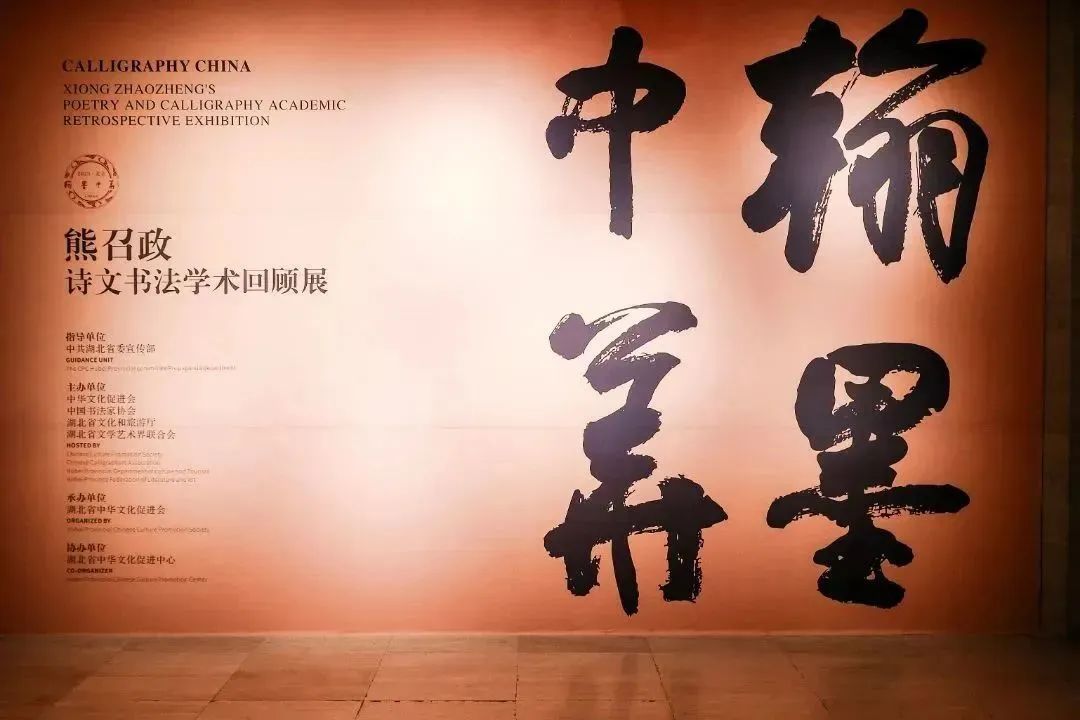 CALLIGRAPHY CHINA
XIONG ZHAOZHENG'S
POETRY AND CALLIGRAPHY ACADEMIC
RETROSPECTIVE EXHIBITION
熊召政
诗文书法学术回顾展
指导单位
中共湖北省委宣传部
GUIDANCE UNIT
主办单位
中华文化促进会
中国书法家协会
湖北省文化和旅游厅
湖北省文学艺术界联合会
HOSTED BY
Chinese Culture Promotion Society
Chinese Calligraphers Association
Hubei Provincial Department of Culture and Tourism
Hubei Province Federation of Literature and Art
承办单位
湖北省中华文化促进会
ORGANIZED BY
Hubei Provincial Chinese Culture Promotion Society
协办单位
湖北省中华文化促进中心
CO-ORGANIZER
Hubei Provincial Chinese Culture Promotion Center
翰墨
中华